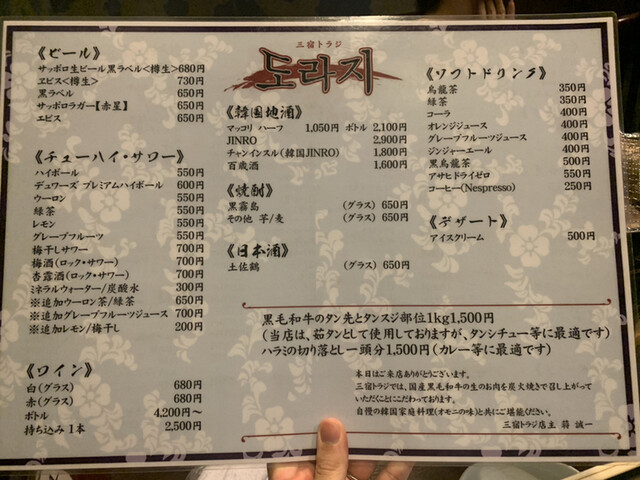 《ビール》
サッポロ生ビール黒ラベル<樽生> 680円
ヱビス<樽生> 730円
黒ラベル 650円
サッポロラガー【赤星】 650円
ヱビス 650円
《チューハイ・サワー》
ハイボール 550円
デュワーズ プレミアムハイボール 600円
ウーロン 550円
緑茶 550円
レモン 550円
グレープフルーツ 550円
梅干しサワー 700円
梅酒(ロック・サワー) 700円
杏露酒(ロック・サワー) 700円
ミネラルウォーター/炭酸水 300円
※追加ウーロン茶/緑茶 650円
※追加グレープフルーツジュース 700円
※追加レモン/梅干し 200円
《ワイン》
白(グラス) 680円
赤(グラス) 680円
ボトル 4,200円～
持ち込み 1本 2,500円
三宿トラジ
도라지
《韓国地酒》
マッコリ ハーフ 1,050円 ボトル 2,100円
JINRO 2,900円
チャンインスル(韓国JINRO) 1,800円
百歳酒 1,600円
《焼酎》
黒霧島 (グラス) 650円
その他 芋/麦 (グラス) 650円
《日本酒》
土佐鶴 (グラス) 650円
《ソフトドリンク》
烏龍茶 350円
緑茶 350円
コーラ 400円
オレンジジュース 400円
グレープフルーツジュース 400円
ジンジャーエール 400円
黒烏龍茶 500円
アサヒドライゼロ 550円
コーヒー(Nespresso) 250円
《デザート》
アイスクリーム 500円
黒毛和牛のタン先とタンスジ部位1kg1,500円
(当店は、茹タンとして使用しておりますが、タンシチュー等に最適です)
ハラミの切り落とし一頭分1,500円(カレー等に最適です)
本日はご来店ありがとうございます。
三宿トラジでは、国産黒毛和牛の生のお肉を炭火焼きで召し上がって
いただくことにこだわっております。
自慢の韓国家庭料理(オモニの味)と共にご堪能ください。
三宿トラジ店主 誠一